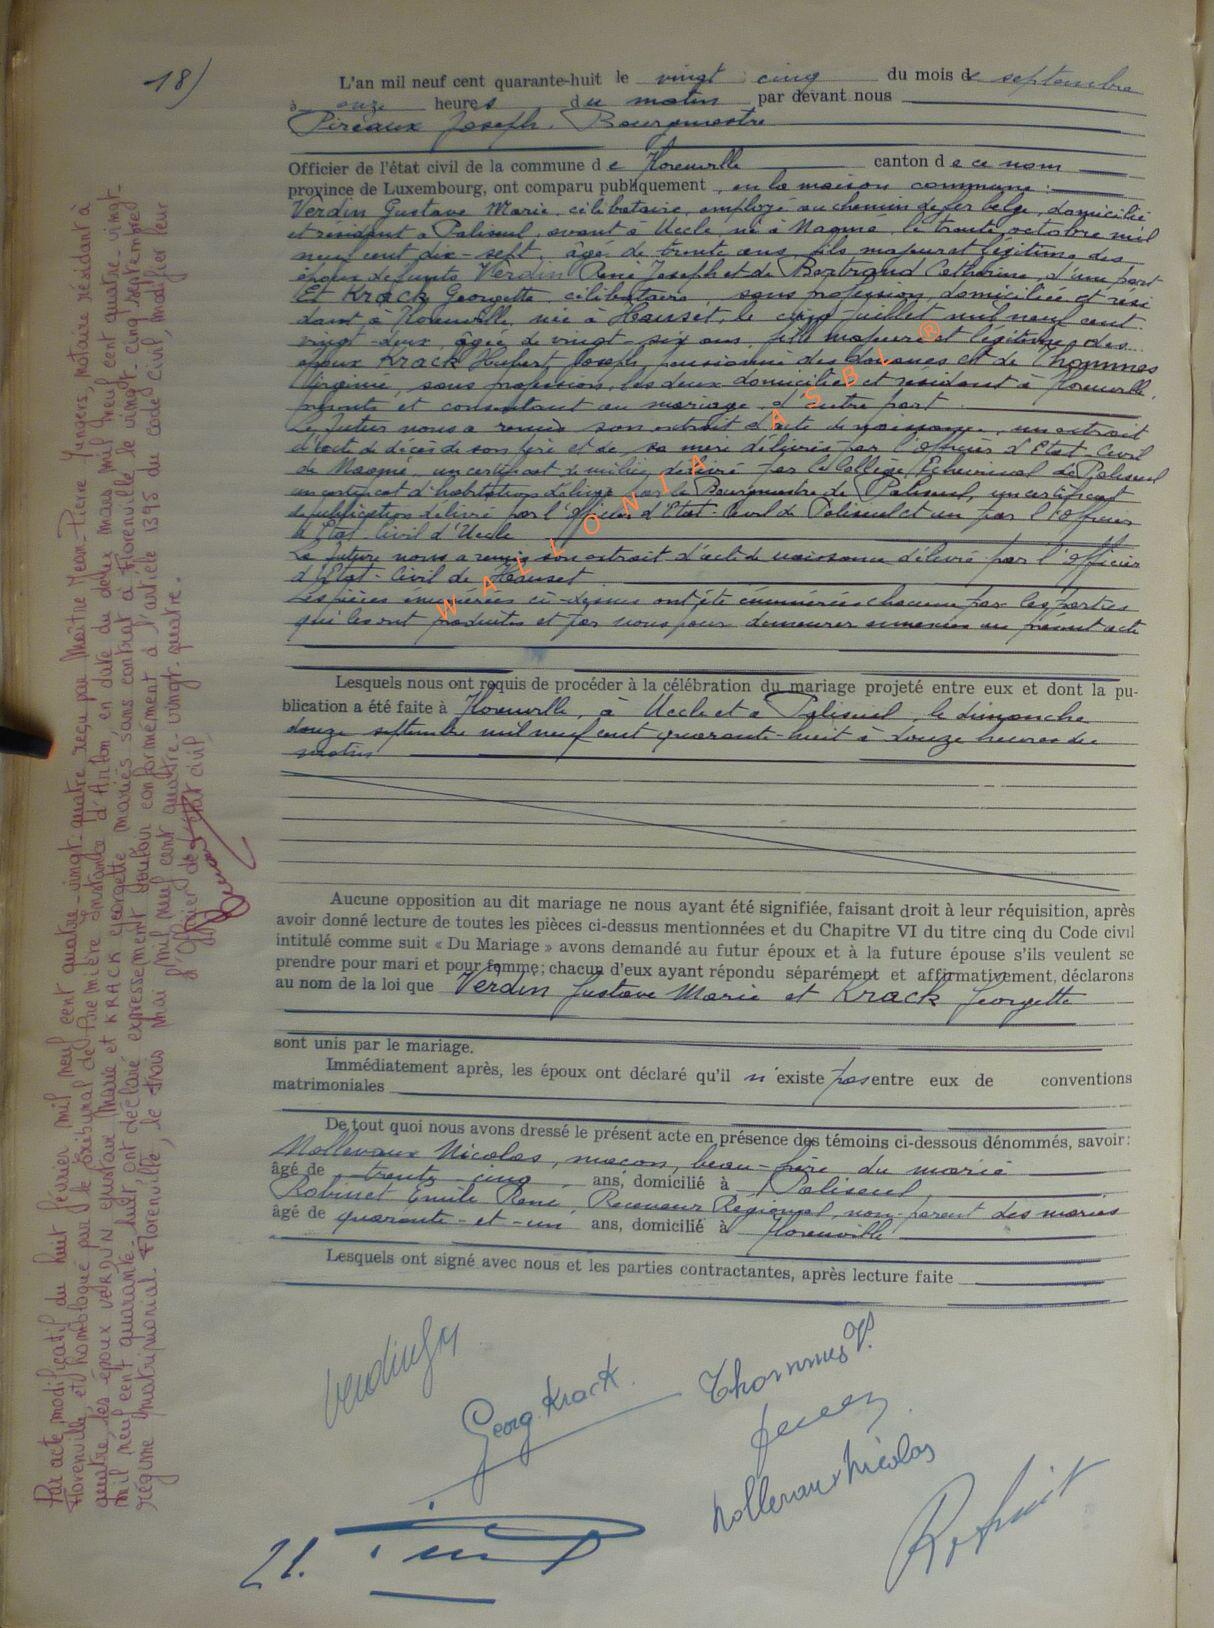 18)
L'an mil neuf cent quarante-huit le vingt cinq du mois de septembre
à onze heures du matin par devant nous
Piréaux Joseph, Bourgmestre
Officier de l'état civil de la commune de Florenville canton de ce nom
province de Luxembourg, ont comparu publiquement, en la maison commune :
Verdin Gustave Marie, célibataire, employé au chemin de fer belge, domicilié
et résidant à Paliseul, avant à Uccle, né à Nagmé, le trente octobre mil
neuf cent dix-sept, âgé de trente ans, fils majeur et légitime des
époux défunts Verdin René Joseph et de Bertrand Catherine, d'une part
Et Krack Georgette, célibataire, sans profession, domiciliée et rési
dant à Florenville, née à Hauset, le cinq juillet mil neuf cent
vingt-deux, âgée de vingt-six ans, fille majeure et légitime des
époux Krack Hubert Joseph pensionné des douanes et de Thommes
Virginie, sans profession, les deux domiciliés et résidant à Florenville,
présents et consentant au mariage, d'autre part.
Le futur nous a remis son extrait d'acte de naissance, un extrait
d'acte de décès de son père et de sa mère délivrés par l'Officier d'Etat-Civil
de Nagmé, un certificat de milice délivré par le Collège Echevinal de Paliseul
un certificat d'habitation délivré par le Bourgmestre de Paliseul, un certificat
de publication délivré par l'Officier d'Etat-Civil de Paliseul et un par l'Officier
d'Etat-Civil d'Uccle
La future nous a remis son extrait d'acte de naissance délivré par l'Officier
d'Etat-Civil de Hauset
Les pièces énumérées ci-dessus ont été chacune par les parties
qui les ont produites et par nous pour demeurer annexées au présent acte
WALLONIA ASBL ®
Lesquels nous ont requis de procéder à la célébration du mariage projeté entre eux et dont la pu-
blication a été faite à Florenville, à Uccle et à Paliseul, le dimanche
douze septembre mil neuf cent quarante-huit à douze heures du
matin
Aucune opposition au dit mariage ne nous ayant été signifiée, faisant droit à leur réquisition, après
avoir donné lecture de toutes les pièces ci-dessus mentionnées et du Chapitre VI du titre cinq du Code civil
intitulé comme suit « Du Mariage » avons demandé au futur époux et à la future épouse s'ils veulent se
prendre pour mari et pour femme; chacun d'eux ayant répondu séparément et affirmativement, déclarons
au nom de la loi que Verdin Gustave Marie et Krack Georgette
sont unis par le mariage.
Immédiatement après, les époux ont déclaré qu'il n'existe pas entre eux de conventions
matrimoniales
De tout quoi nous avons dressé le présent acte en présence des témoins ci-dessous dénommés, savoir:
Mollevaux Nicolas, maçon, beau-frère du marié
âgé de trente cinq ans, domicilié à Paliseul,
Robinet Emile René, Receveur Régional, non-parent des mariés
âgé de quarante-et-un ans, domicilié à Florenville
Lesquels ont signé avec nous et les parties contractantes, après lecture faite
Verdin
Georg. Krack.
Thommes V.
Mollevaux Nicolas
Robinet
Par acte modificatif du huit février mil neuf cent quatre-vingt-quatre reçu par Maître Jean-Pierre Jungers, notaire résidant à
Florenville, et homologué par le Tribunal de Première Instance d'Arlon, en date du deux mars mil neuf cent quatre-vingt-
quatre, les époux VERDIN Gustave Marie et KRACK Georgette mariés sans contrat à Florenville le vingt-cinq septembre
mil neuf cent quarante-huit, ont déclaré expressément vouloir conformément à l'article 1395 du Code civil, modifier leur
régime matrimonial. Florenville, le trois mai mil neuf cent quatre-vingt-quatre.
l'Officier de l'état civil,